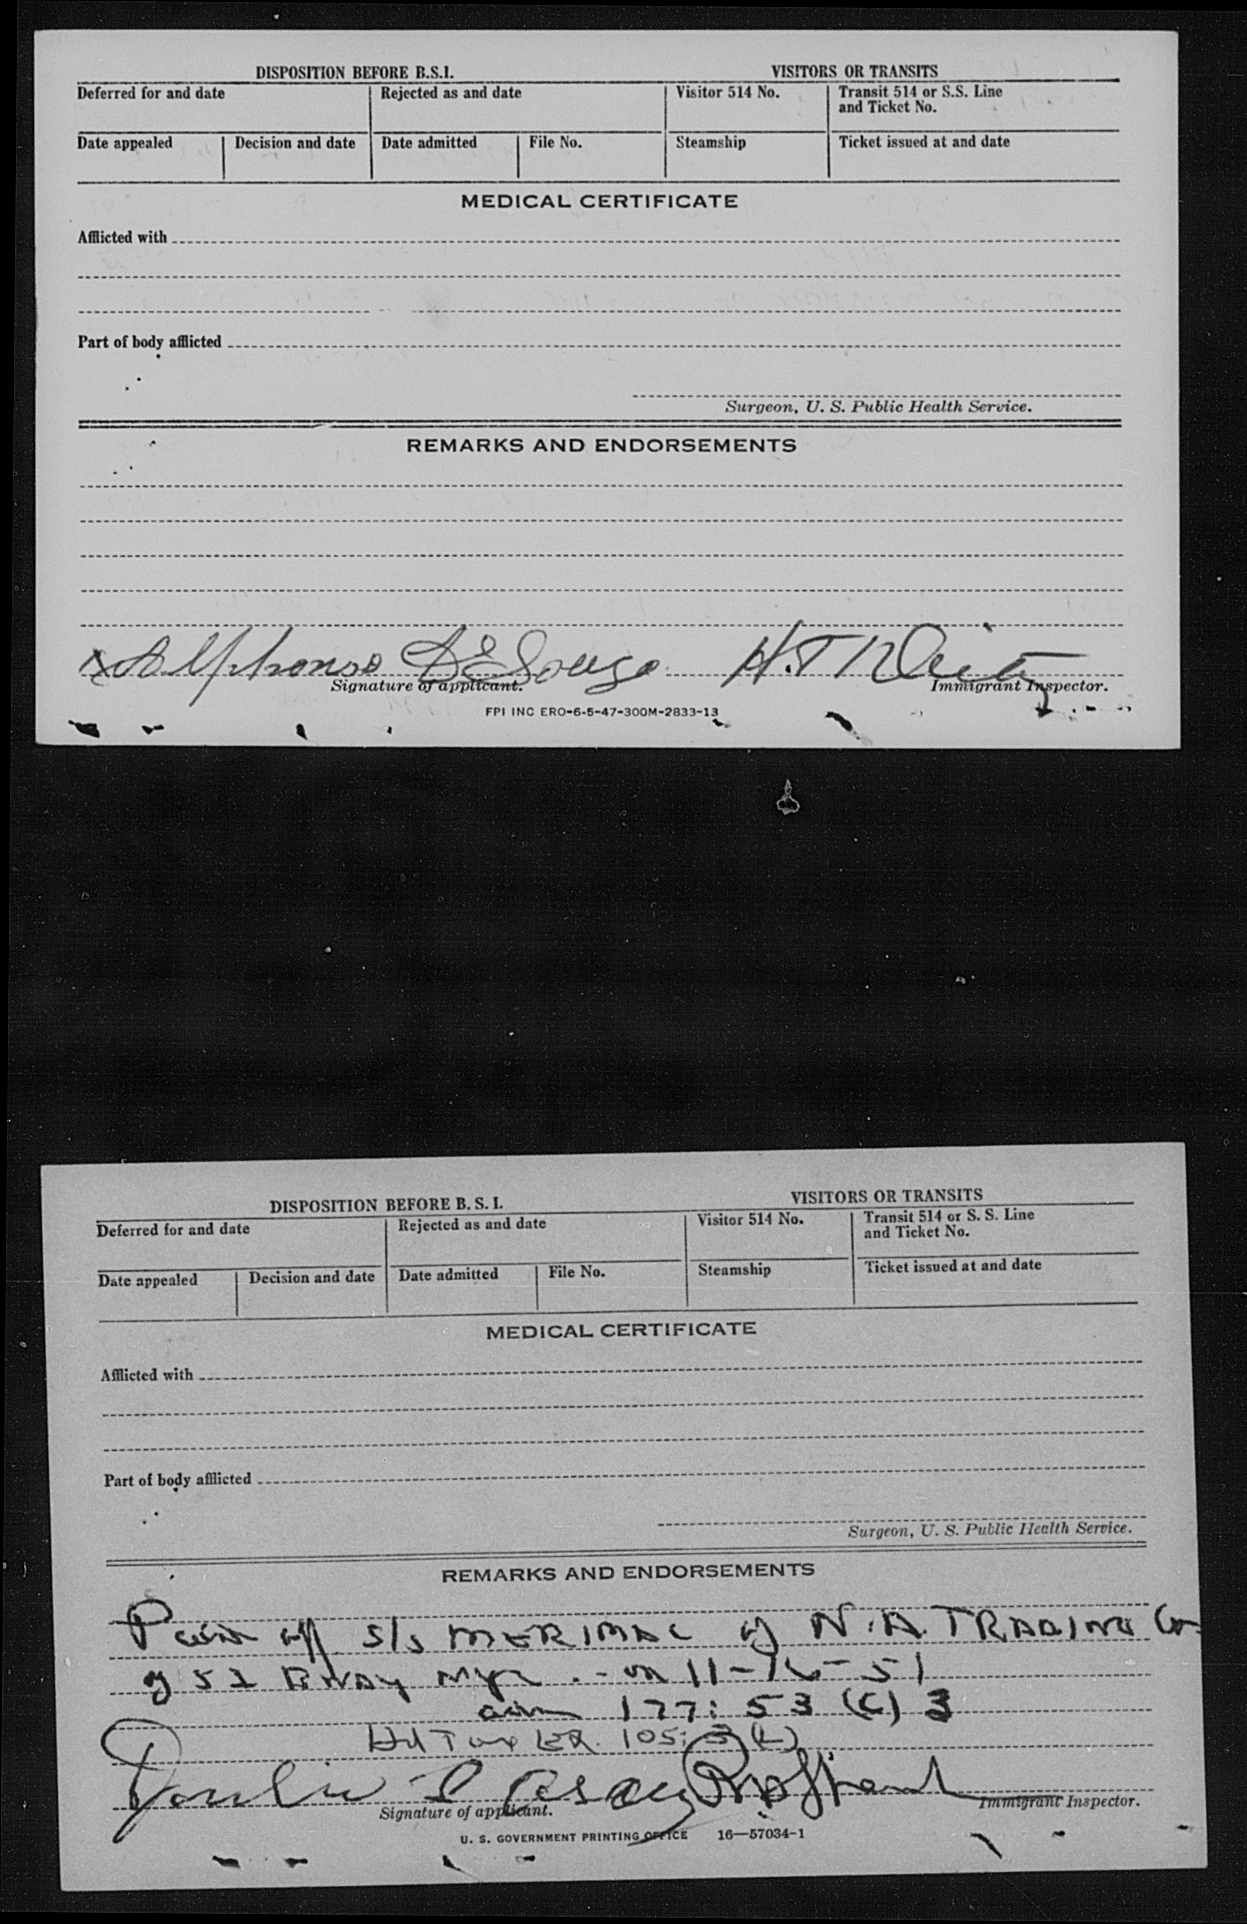 DISPOSITION BEFORE B.S.I. VISITORS OR TRANSITS
Deferred for and date Rejected as and date Visitor 514 No. Transit 514 or S.S. Line
and Ticket No.
Date appealed Decision and date Date admitted File No. Steamship Ticket issued at and date
MEDICAL CERTIFICATE
Afflicted with
Part of body afflicted
Surgeon, U. S. Public Health Service.
REMARKS AND ENDORSEMENTS
x Alphonso DeSouza H.T.
Signature of applicant. Immigrant Inspector.
FPI INC ERO-6-5-47-300M-2833-13
DISPOSITION BEFORE B. S. I. VISITORS OR TRANSITS
Deferred for and date Rejected as and date Visitor 514 No. Transit 514 or S. S. Line
and Ticket No.
Date appealed Decision and date Date admitted File No. Steamship Ticket issued at and date
MEDICAL CERTIFICATE
Afflicted with
Part of body afflicted
Surgeon, U. S. Public Health Service.
REMARKS AND ENDORSEMENTS
off s/s MERIMAC of N.A. TRADING Co
of 52 BWAY NYC. - on 11-16-51
177: 53 (C) 3
Hd Tax 105: 3 (L)
Signature of applicant. Immigrant Inspector.
U. S. GOVERNMENT PRINTING OFFICE 16—57034-1